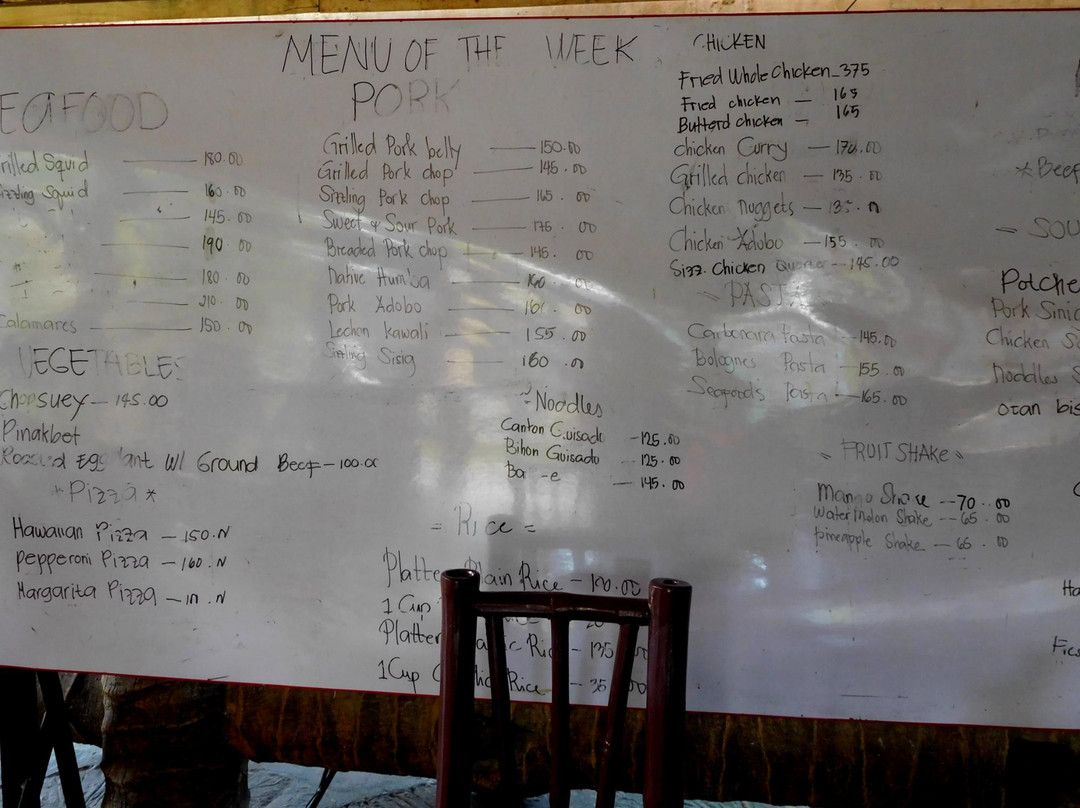 MENU OF THE WEEK
EAFOOD
rilled Squid 180.00
izzling Squid 160.00
145.00
190.00
180.00
210.00
Calamares 150.00
VEGETABLES
Chopsuey 145.00
Pinakbet
Ground Beef 100.00
*Pizza*
Hawaiian Pizza 150.N
Pepperoni Pizza 160.N
Margarita Pizza
PORK
Grilled Pork belly 150.00
Grilled Pork chop 145.00
Sizzling Pork chop 165.00
Sweet & Sour Pork 175.00
Breaded Pork chop 145.00
Native Humba 00
Pork Adobo 00
Lechon Kawali 155.00
Sizzling Sisig 160.00
Noodles
Canton Guisado 125.00
Bihon Guisado 125.00
145.00
= Rice =
Platte Plain Rice 100.00
1 Cup
Platter 135
1 Cup Rice 35 00
CHICKEN
Fried Whole Chicken 375
Fried chicken 165
Butterd chicken 165
chicken Curry 170.00
Grilled chicken 135.00
Chicken nuggets
Chicken Adobo 155.00
Sizz. Chicken 145.00
PASTA
Carbonara Pasta 145.00
Bolognes Pasta 155.00
Seafoods Pasta 165.00
FRUIT SHAKE
Mango Shake 70.00
Watermelon Shake 65.00
pineapple Shake 65.00
*Beef
SOU
Potche
Pork Sinig
Chicken So
Noddles S
otan bis